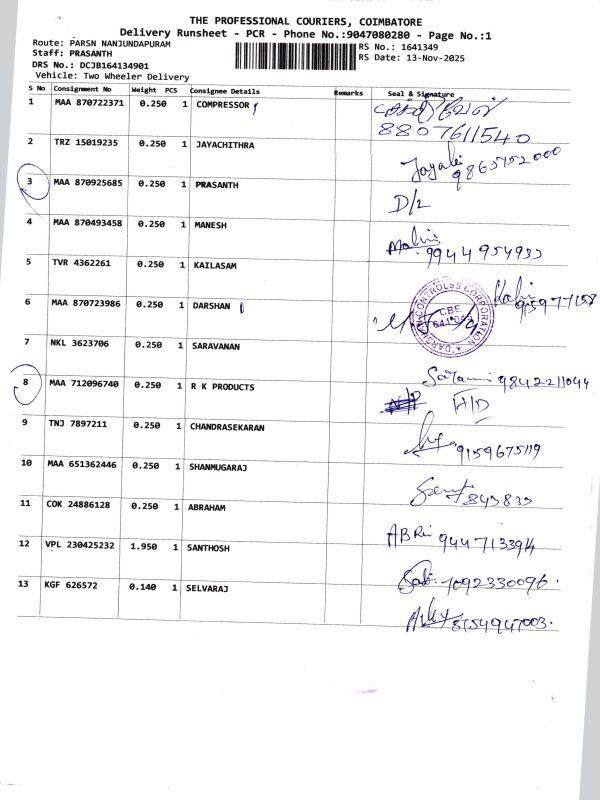 THE PROFESSIONAL COURIERS, COIMBATORE
Delivery Runsheet - PCR - Phone No.:9047080280 - Page No.:1
Route: PARSN NANJUNDAPURAM
RS No.: 1641349
Staff: PRASANTH
RS Date: 13-Nov-2025
DRS No.: DCJB164134901
Vehicle: Two Wheeler Delivery
S No Consignment No Weight PCS Consignee Details Remarks Seal & Signature
1 MAA 870722371 0.250 1 COMPRESSOR
8807611540
2 TRZ 15019235 0.250 1 JAYACHITHRA
9865152000
3 MAA 870925685 0.250 1 PRASANTH D/L
4 MAA 870493458 0.250 1 MANESH
9944954933
5 TVR 4362261 0.250 1 KAILASAM
6 MAA 870723986 0.250 1 DARSHAN
DARSHAN CONTROLSS CORPORATION
CBE
7 NKL 3623706 0.250 1 SARAVANAN
9842211044
8 MAA 712096740 0.250 1 R K PRODUCTS H/D
9 TNJ 7897211 0.250 1 CHANDRASEKARAN
9159675119
10 MAA 651362446 0.250 1 SHANMUGARAJ
843833
11 COK 24886128 0.250 1 ABRAHAM
9447133914
12 VPL 230425232 1.950 1 SANTHOSH
7092330096.
13 KGF 626572 0.140 1 SELVARAJ
8154947003.